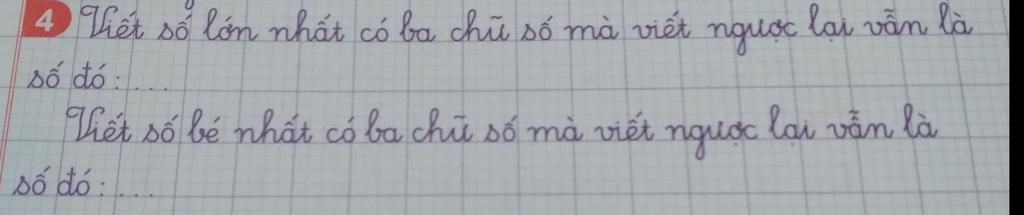 4 Viết số lớn nhất có ba chữ số mà viết ngược lại vẫn là
số đó: ...
Viết số bé nhất có ba chữ số mà viết ngược lại vẫn là
số đó: ...